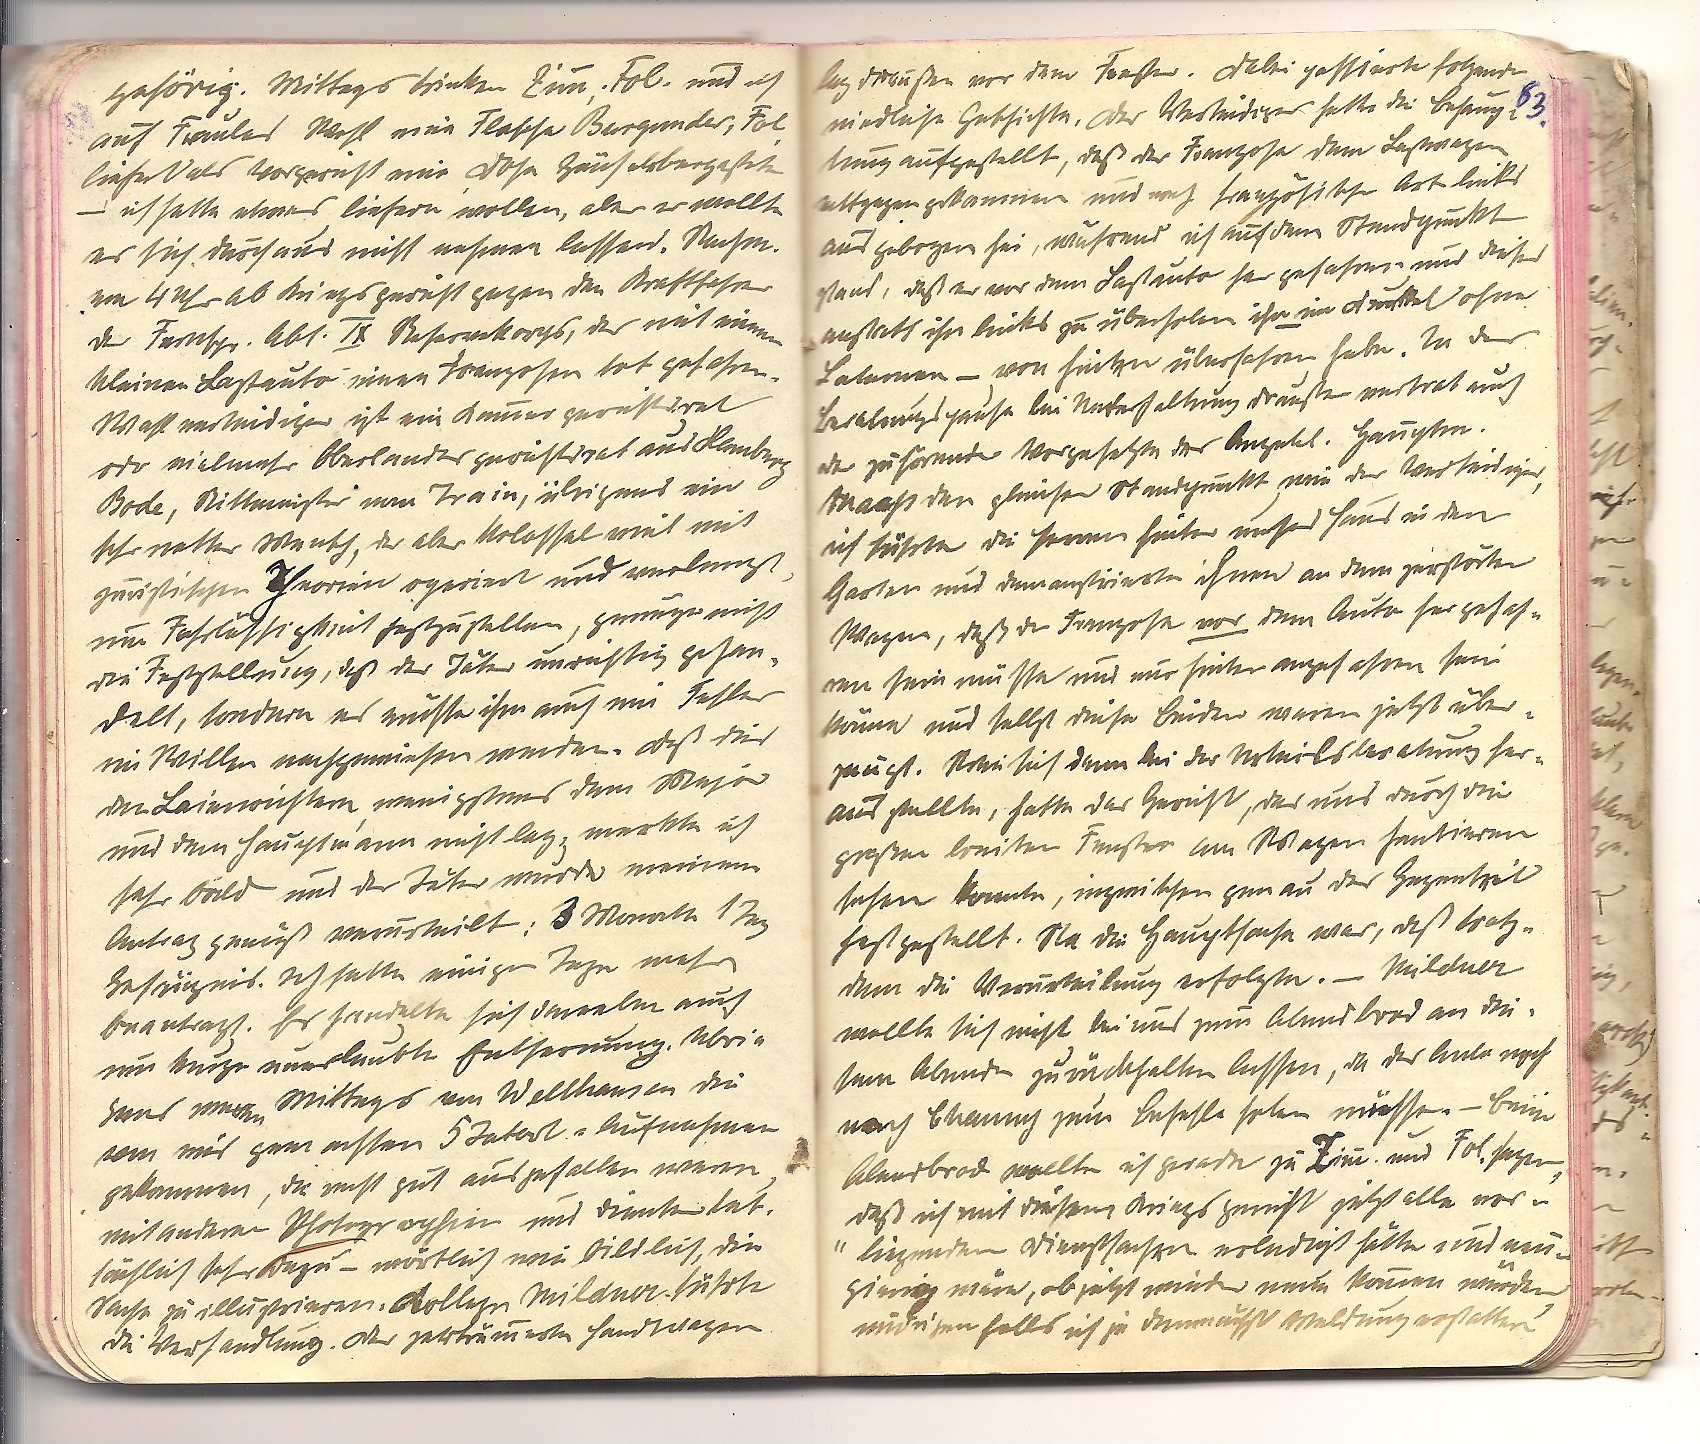 gehörig. Mittags trinken Zim., Fol. und ich
auf Paulas Wohl eine Flasche Burgunder, Fol
liefert als Vorgericht eine Dose Gänseleberpastete
— ich hatte etwas liefern wollen, aber er wollte
es sich durchaus nicht nehmen lassen. Nachm.
um 4 Uhr ab Kriegsgericht gegen den Kraftfahrer
der Fernspr. Abt. IX Reservekorps, der mit einem
kleinen Lastauto einen Franzosen tot gefahren.
Wahlverteidiger ist ein Kammergerichtsrat
oder vielmehr Oberlandesgerichtsrat aus Hamburg
Bode, Rittmeister vom Train, übrigens ein
sehr netter Mensch, der aber kolossal viel mit
juristischen Theorien operiert und verlangt,
um Fahrlässigkeit festzustellen, genüge nicht
die Feststellung, daß der Täter unrichtig gehan-
delt, sondern es müsse ihm auch ein Fehler
im Willen nachgewiesen werden. Daß dies
den Laienrichtern, wenigstens dem Major
und dem Hauptmann nicht lag, merkte ich
sehr bald und der Täter wurde meinem
Antrag gemäß verurteilt: 3 Monate 1 Tag
Gefängnis. Ich hatte einige Tage mehr
beantragt. Es handelte sich daneben auch
um kurze unerlaubte Entfernung. Übri-
gens waren Mittags von Wellhausen die
von mir gemachten 5 Tatort-Aufnahmen
gekommen, die recht gut ausgefallen waren,
mit anderen Photographien und dienten tat-
sächlich sehr dazu — wörtlich wie bildlich, die
Sache zu illustrieren. Kollege Mildner führte
die Verhandlung. Der zertrümmerte Handwagen
63.
lag draußen vor dem Fenster. Dabei passierte folgende
niedliche Geschichte. Der Verteidiger hatte die Behaup-
tung aufgestellt, daß der Franzose dem Lastwagen
entgegengekommen und nach französischer Art links
ausgebogen sei, während ich auf dem Standpunkt
stand, daß er vor dem Lastauto her gefahren und dieses
anstatt ihn links zu überholen ihn im Dunkel ohne
Laternen — von hinten überfahren habe. In der
Beratungspause bei Unterhaltung draußen vertrat auch
der zuhörende Vorgesetzte des Angekl. Hauptm.
Maaß den gleichen Standpunkt wie der Verteidiger,
ich führte die Herren hinter unser Haus in den
Garten und demonstrierte ihnen an dem zerstörten
Wagen, daß der Franzose vor dem Auto her gefah-
ren sein müsse und nur hinten angefahren sein
könne und selbst diese beiden waren jetzt über-
zeugt. Wie sich dann bei der Urteilsberatung her-
ausstellte, hatte das Gericht, das uns durch die
großen breiten Fenster am Wagen hantieren
sehen konnte, inzwischen genau das Gegenteil
festgestellt. Na die Hauptsache war, daß trotz-
dem die Verurteilung erfolgte. — Mildner
wollte sich nicht bei uns zum Abendbrod an die-
sem Abende zurückhalten lassen, da das Auto noch
nach Chauny zum Befehle holen müsse. — Beim
Abendbrod wollte ich gerade zu Zim. und Fol. sagen,
daß ich mit diesem Kriegsgericht jetzt alle vor-
" liegenden Dienstsachen erledigt hätte und neu-
gierig wäre, ob jetzt wieder neue kommen würden,
falls ich ja demnächst Meldung erstatten